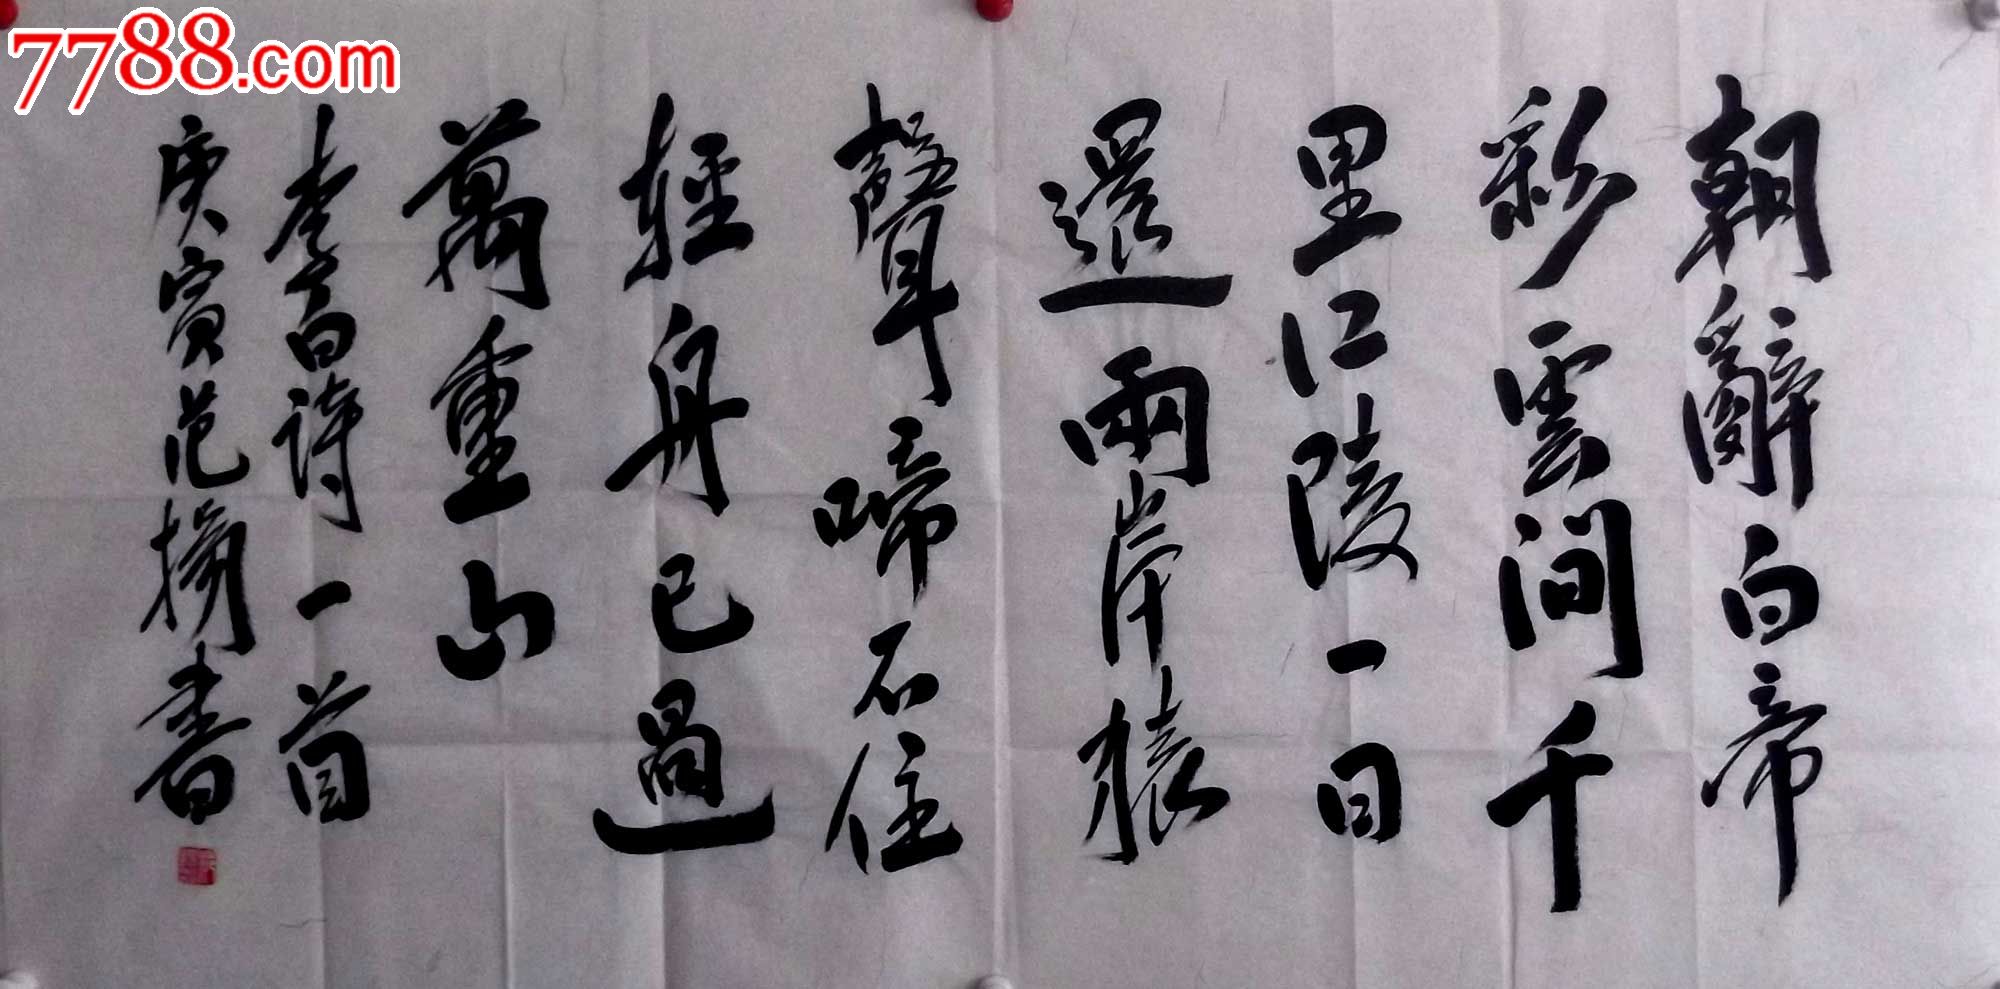 朝辭白帝
彩雲間千
里江陵一日
還兩岸猿
聲啼不住
輕舟已過
萬重山
李白詩一首
庚寅范揚書
7788.com